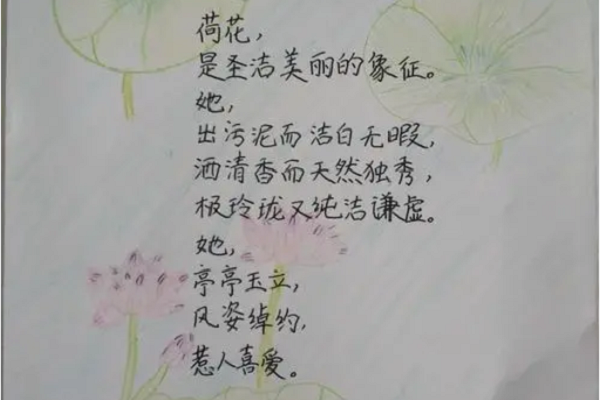 荷花，
是圣洁美丽的象征。
她，
出污泥而洁白无暇，
洒清香而天然独秀，
极玲珑又纯洁谦虚。
她，
亭亭玉立，
风姿绰约，
惹人喜爱。